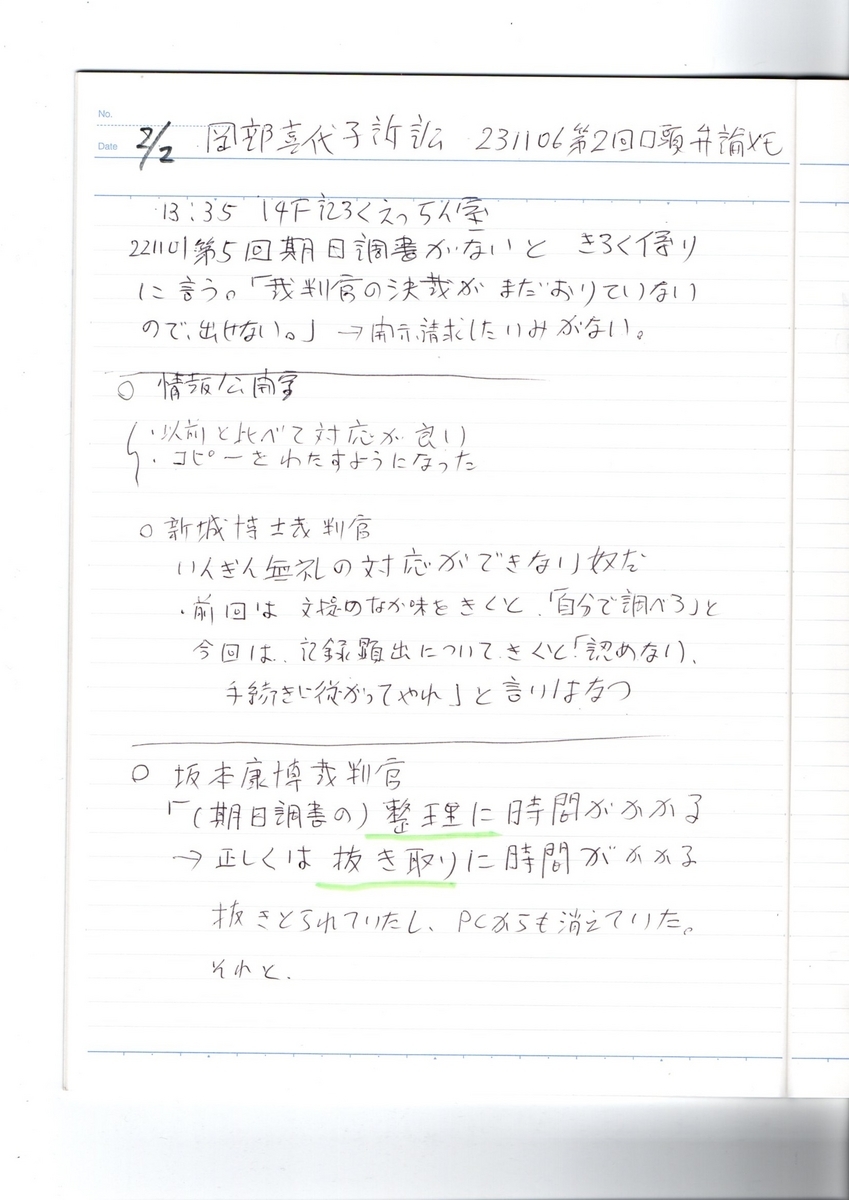 No.
Date
2/2 岡部喜代子訴訟 231106第2回口頭弁論メモ
13:35 14F 記ろくえつらん室
221101第5回期日調書がないと きろく係り
に言う。「裁判官の決裁がまだおりていない
ので、出せない。」→開示請求したいみがない。
○ 情報公開室
・以前と比べて対応が良い
・コピーをわたすようになった
○ 新城博士裁判官
いんぎん無礼の対応ができない奴だ
・前回は 文提のなか味をきくと、「自分で調べろ」と
今回は、記録顕出についてきくと「認めない、
手続きに従がってやれ」と言いはなつ
○ 坂本康博裁判官
「(期日調書の)整理に時間がかかる
→ 正しくは 抜き取りに時間がかかる
抜きとられていたし、PCからも消えていた。
それと、